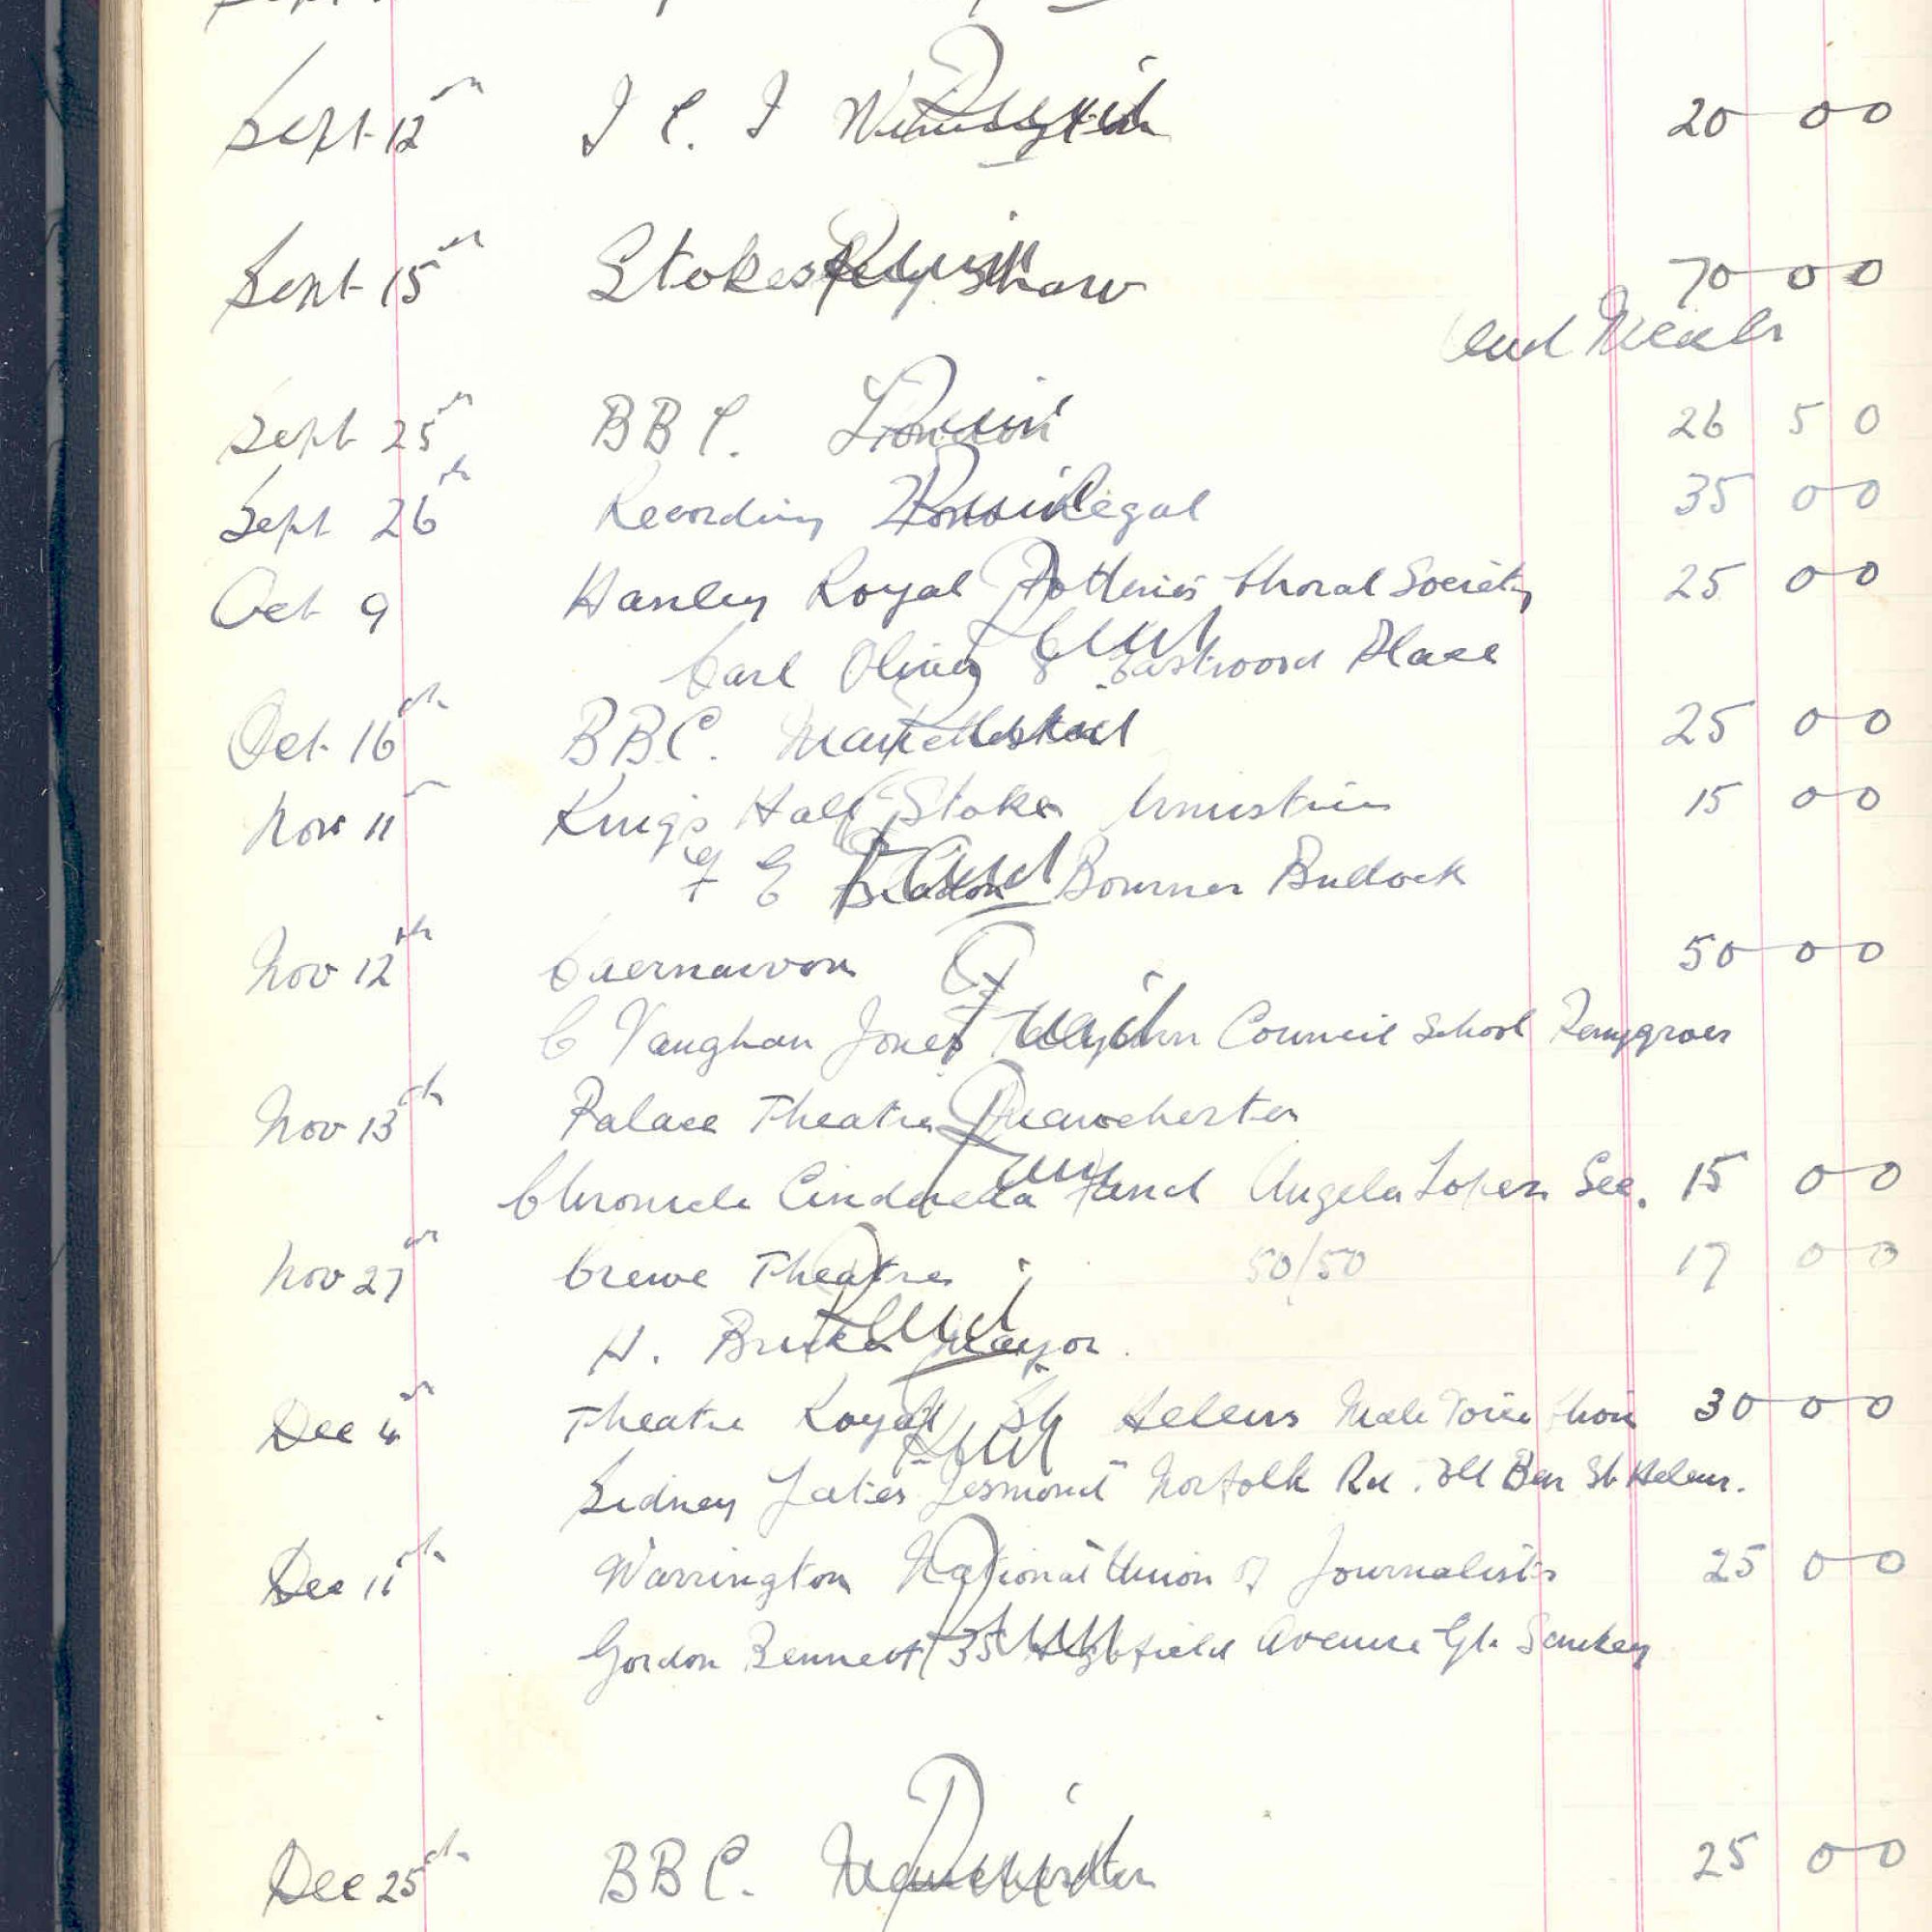 Sept 12th I C. I Winnington Paid 20 0 0
Sept 15th Stokesley Show Paid 70 0 0
and Meals
Sept 25th BBC. London Paid 26 5 0
Sept 26th Recording Zono Regal Paid 35 0 0
Oct 9 Hanley Royal Potteries Choral Society 25 0 0
Carl Oliver 8 Eastwood Place Paid
Oct 16th BBC. Manchester Paid 25 0 0
Nov 11th King's Hall Stoke Armistice 15 0 0
F E Paid Bourner Bullock
Nov 12th Caernarvon 50 0 0
C Vaughan Jones Paid Council School Penygroes
Nov 13th Palace Theatre Manchester
Chronicle Cinderella Fund Angela Lopez Sec. 15 0 0
Nov 27th Crewe Theatre 50/50 17 0 0
H. Mayor. Paid
Dec 4th Theatre Royal St Helens Male Voice Choir 30 0 0
Sidney Yates "Jesmond" Norfolk Rd. St Helens. Paid
Dec 11th Warrington National Union of Journalists 25 0 0
Gordon Bennett 35 Highfield Avenue Gt. Sankey Paid
Dec 25th BBC. Manchester Paid 25 0 0